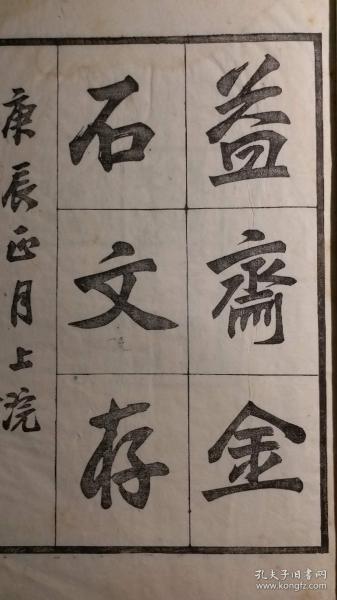 益齋金
石文存
庚辰正月上浣
孔夫子旧书网